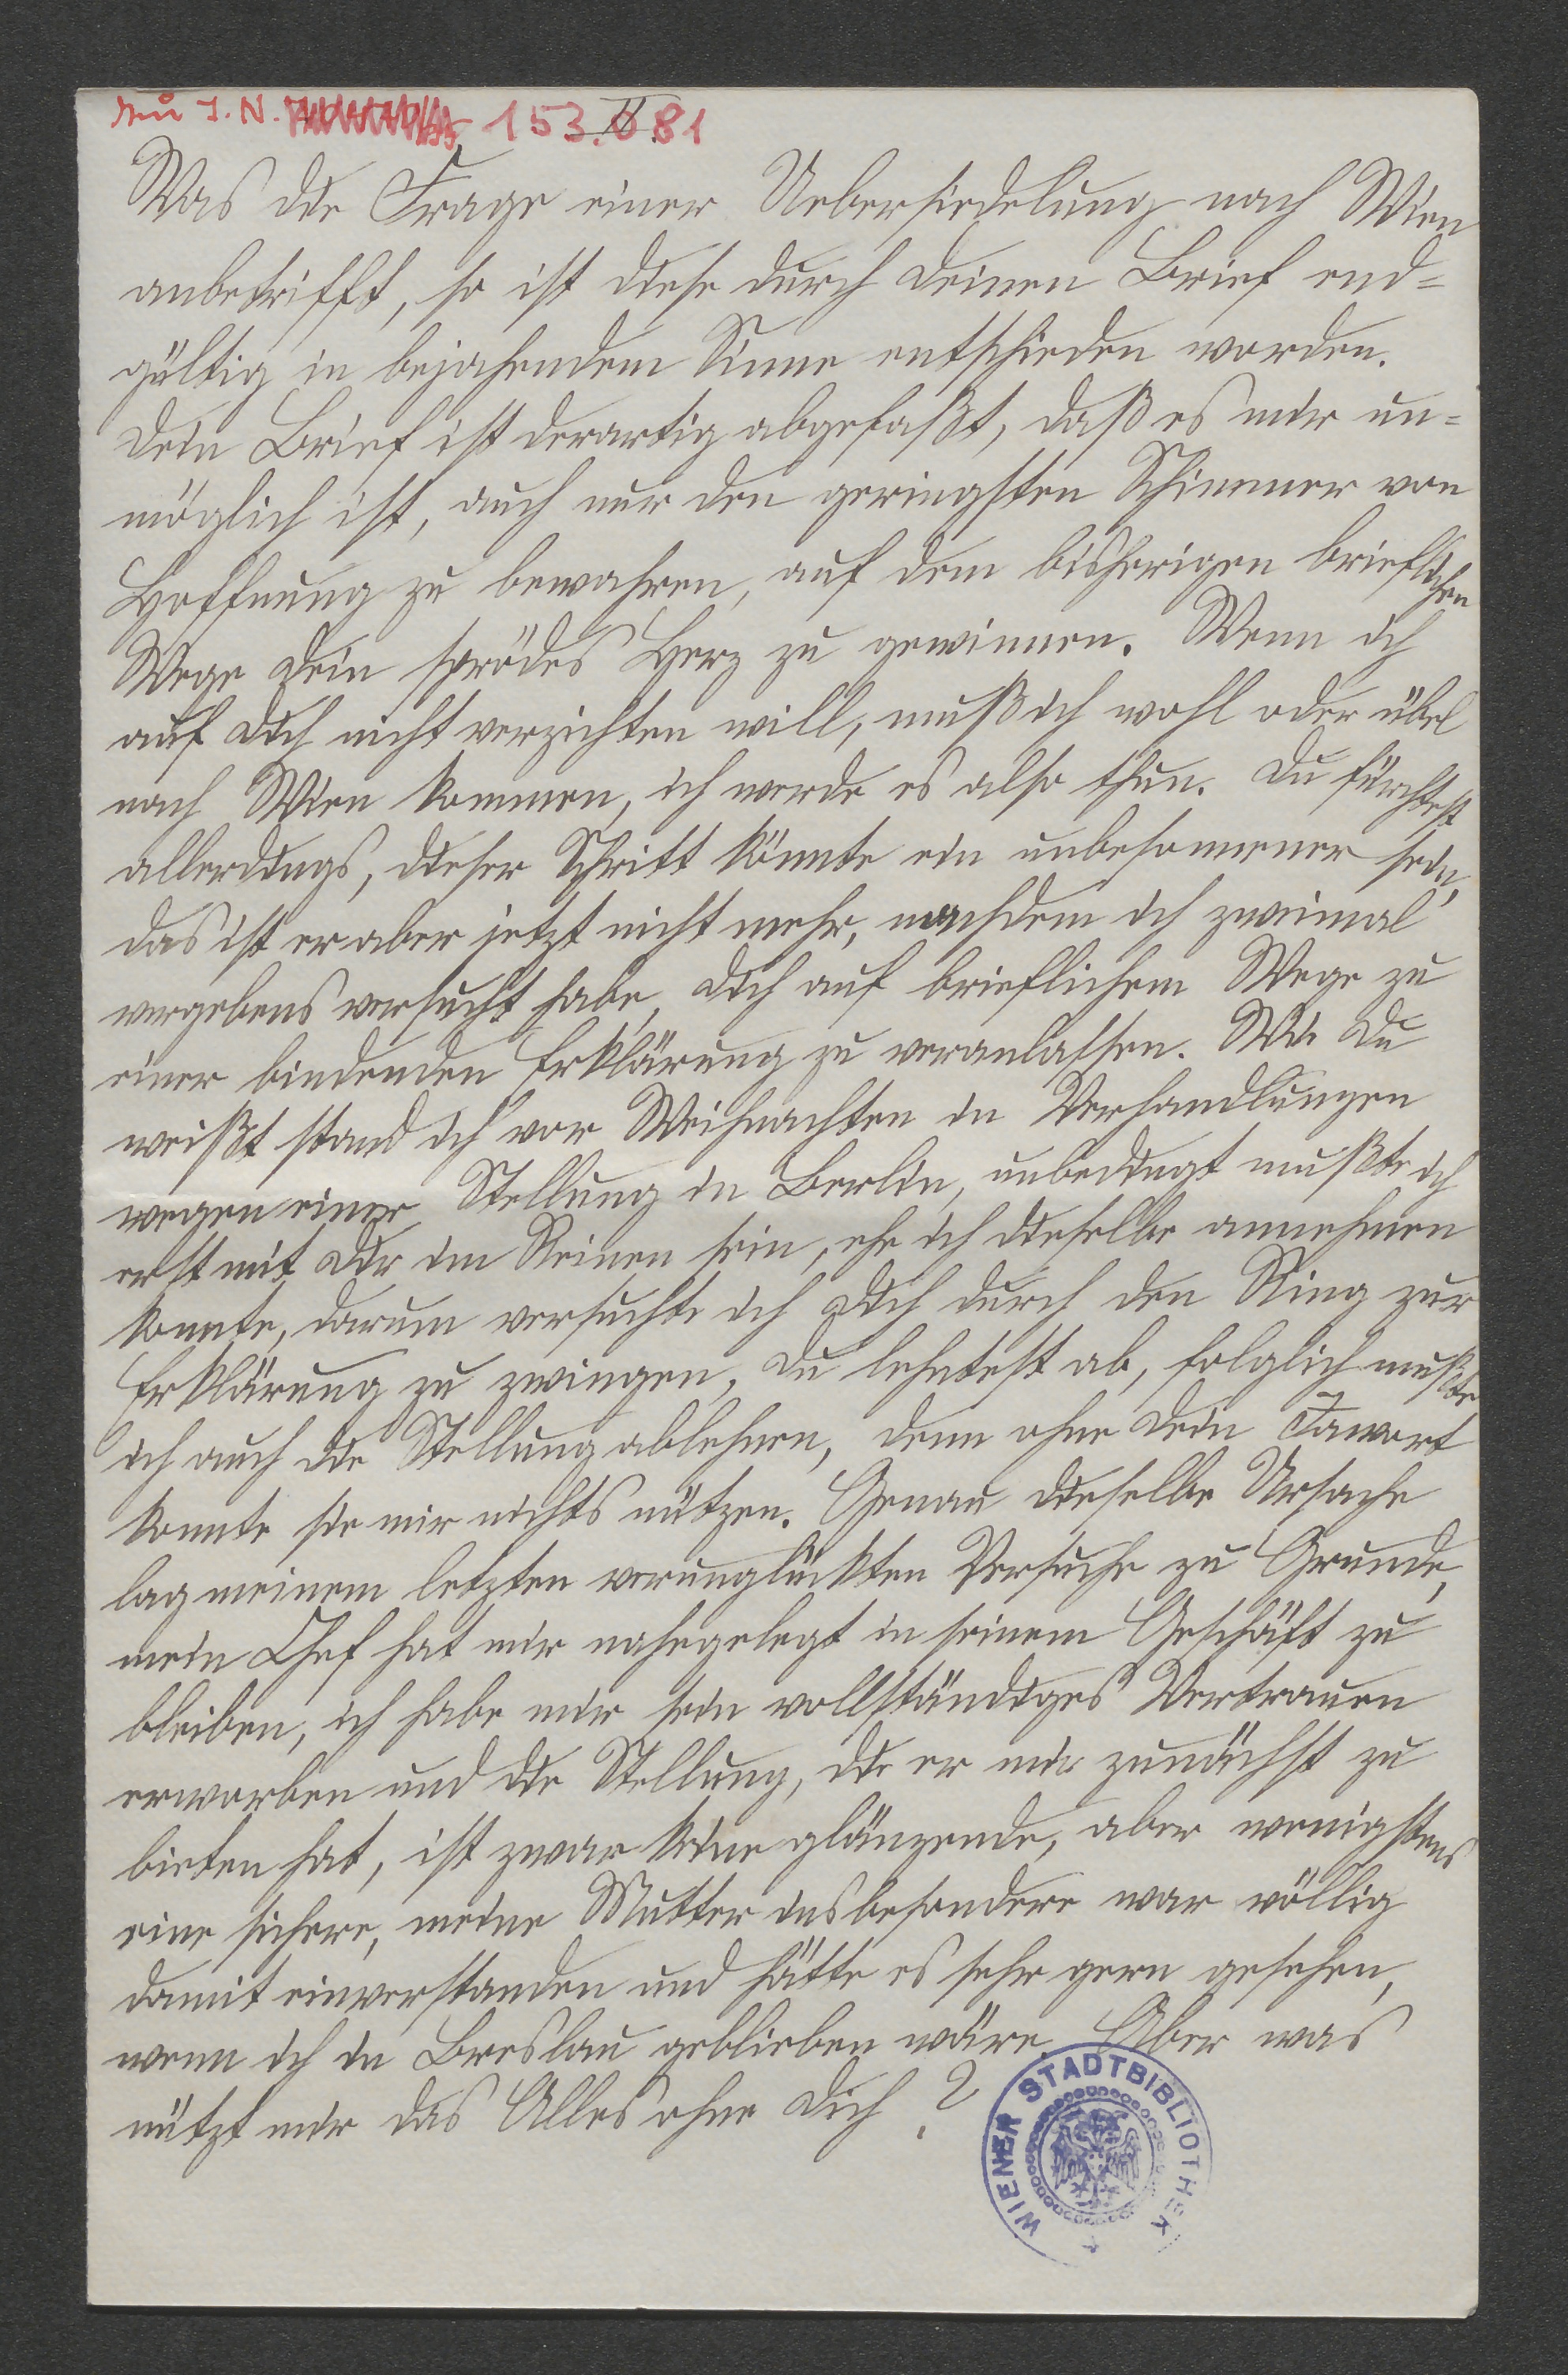 zu I. N. 153.081
II
Was die Frage einer Uebersiedelung nach Wien
anbetrifft, so ist diese durch Deinen Brief end=
gültig in bejahendem Sinne entschieden worden.
Dein Brief ist derartig abgefaßt, daß es mir un=
möglich ist, auch nur den geringsten Schimmer von
Hoffnung zu bewahren, auf dem bisherigen brieflichen
Wege Dein sprödes Herz zu gewinnen. Wenn ich
auf Dich nicht verzichten will, muß ich wohl oder übel
nach Wien kommen, ich werde es also thun. Du fürchtest
allerdings, dieser Schritt könnte ein unbesonnener sein,
das ist er aber jetzt nicht mehr, nachdem ich zweimal
vergebens versucht habe, Dich auf brieflichem Wege zu
einer bindenden Erklärung zu veranlassen. Wie Du
weißt stand ich vor Weihnachten in Verhandlungen
wegen einer Stellung in Berlin, unbedingt mußte ich
erst mit Dir im Reinen sein, ehe ich dieselbe annehmen
konnte, darum versuchte ich Dich durch den Ring zur
Erklärung zu zwingen, Du lehntest ab, folglich mußte
ich auch die Stellung ablehnen, denn ohne Dein Jawort
konnte sie mir nichts nützen. Genau dieselbe Ursache
lag meinem letzten verunglückten Versuche zu Grunde,
mein Chef hat mir nahegelegt in seinem Geschäft zu
bleiben, ich habe mir sein vollständiges Vertrauen
erworben und die Stellung, die er mir zunächst zu
bieten hat, ist zwar keine glänzende, aber wenigstens
eine sichere, meine Mutter insbesondere war völlig
damit einverstanden und hätte es sehr gern gesehen,
wenn ich in Breslau geblieben wäre. Aber was
nützt mir das Alles ohne Dich?
WIENER STADTBIBLIOTHEK